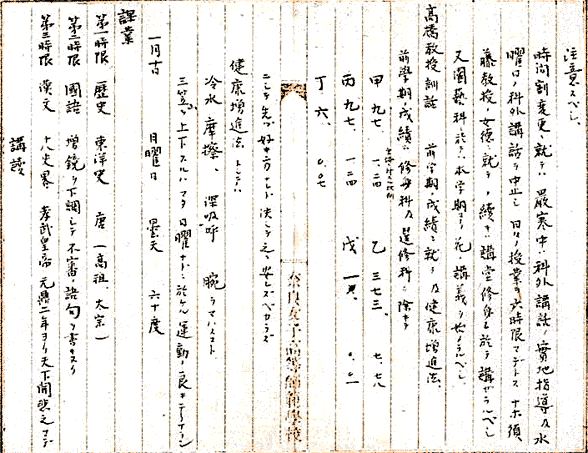 注意スベシ、
時間割変更ニ就テハ 厳寒中ハ科外講話、實地指導及水
曜日ノ科外講話ヲ中止シ 日々ノ授業ヲ六時限マデトス ナホ須
藤教授ノ女徳ニ就テノ續キハ講堂修身ニ於テ講ゼラルベシ
又園藝科ニ於テハ本学期ヨリ花ノ講義ヲセラルベシ
高橋教授訓話 前学期ノ成績ニ就テ及健康増進法、
前學期ノ成績ハ修身科及選修科ヲ除キテ
甲 九七、 一、二四 乙 三七三、 七、七八
丙 九七、 一、二四 戊 一 〇、〇一
丁 六、 〇、〇七
ニシテ先ヅ好キ方ナレド 決シテ之ニ安ンズベカラズ
健康増進法トシテハ
冷水摩擦、深呼吸 腕ヲマハスコト
三笠ヲ上下スルハ マタ日曜ナドニ於ケル運動ニ良キ
一月十日 日曜日 曇天 六十度
課業
第一時限 歴史 東洋史 唐 (高祖、太宗)
第二時限 國語 増鏡ノ下調シテ不審ノ語句ヲ書キヌク
第三時限 漢文 十八史畧 孝武皇帝 元鼎二年ヨリ天下
講讀
奈良女子高等師範學校